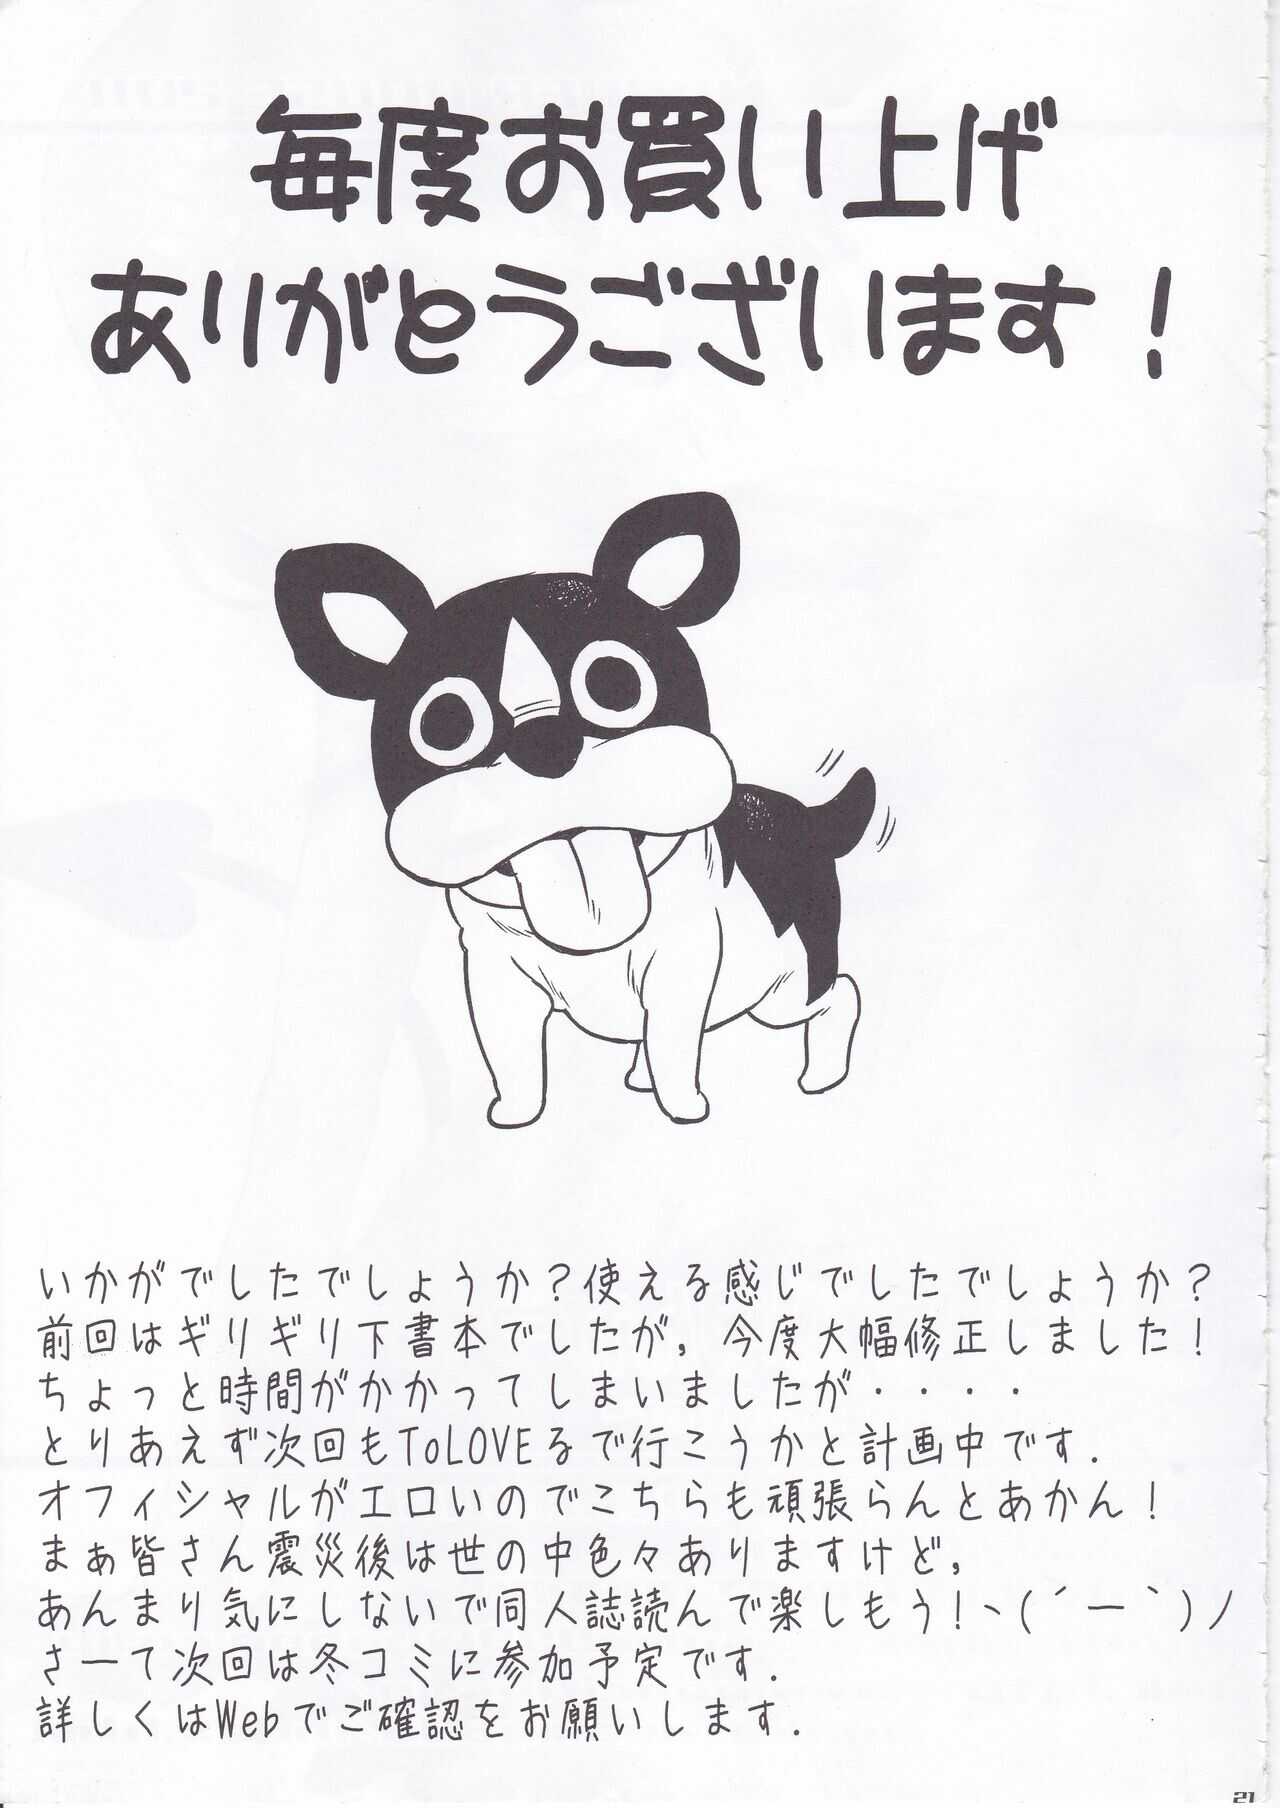 毎度お買い上げ
ありがとうございます！
いかがでしたでしょうか？使える感じでしたでしょうか？
前回はギリギリ下書本でしたが，今度大幅修正しました！
ちょっと時間がかかってしまいましたが・・・・
とりあえず次回もToLOVEるで行こうかと計画中です．
オフィシャルがエロいのでこちらも頑張らんとあかん！
まぁ皆さん震災後は世の中色々ありますけど，
あんまり気にしないで同人誌読んで楽しもう！ヽ(´ー｀)ノ
さーて次回は冬コミに参加予定です．
詳しくはWebでご確認をお願いします．
21